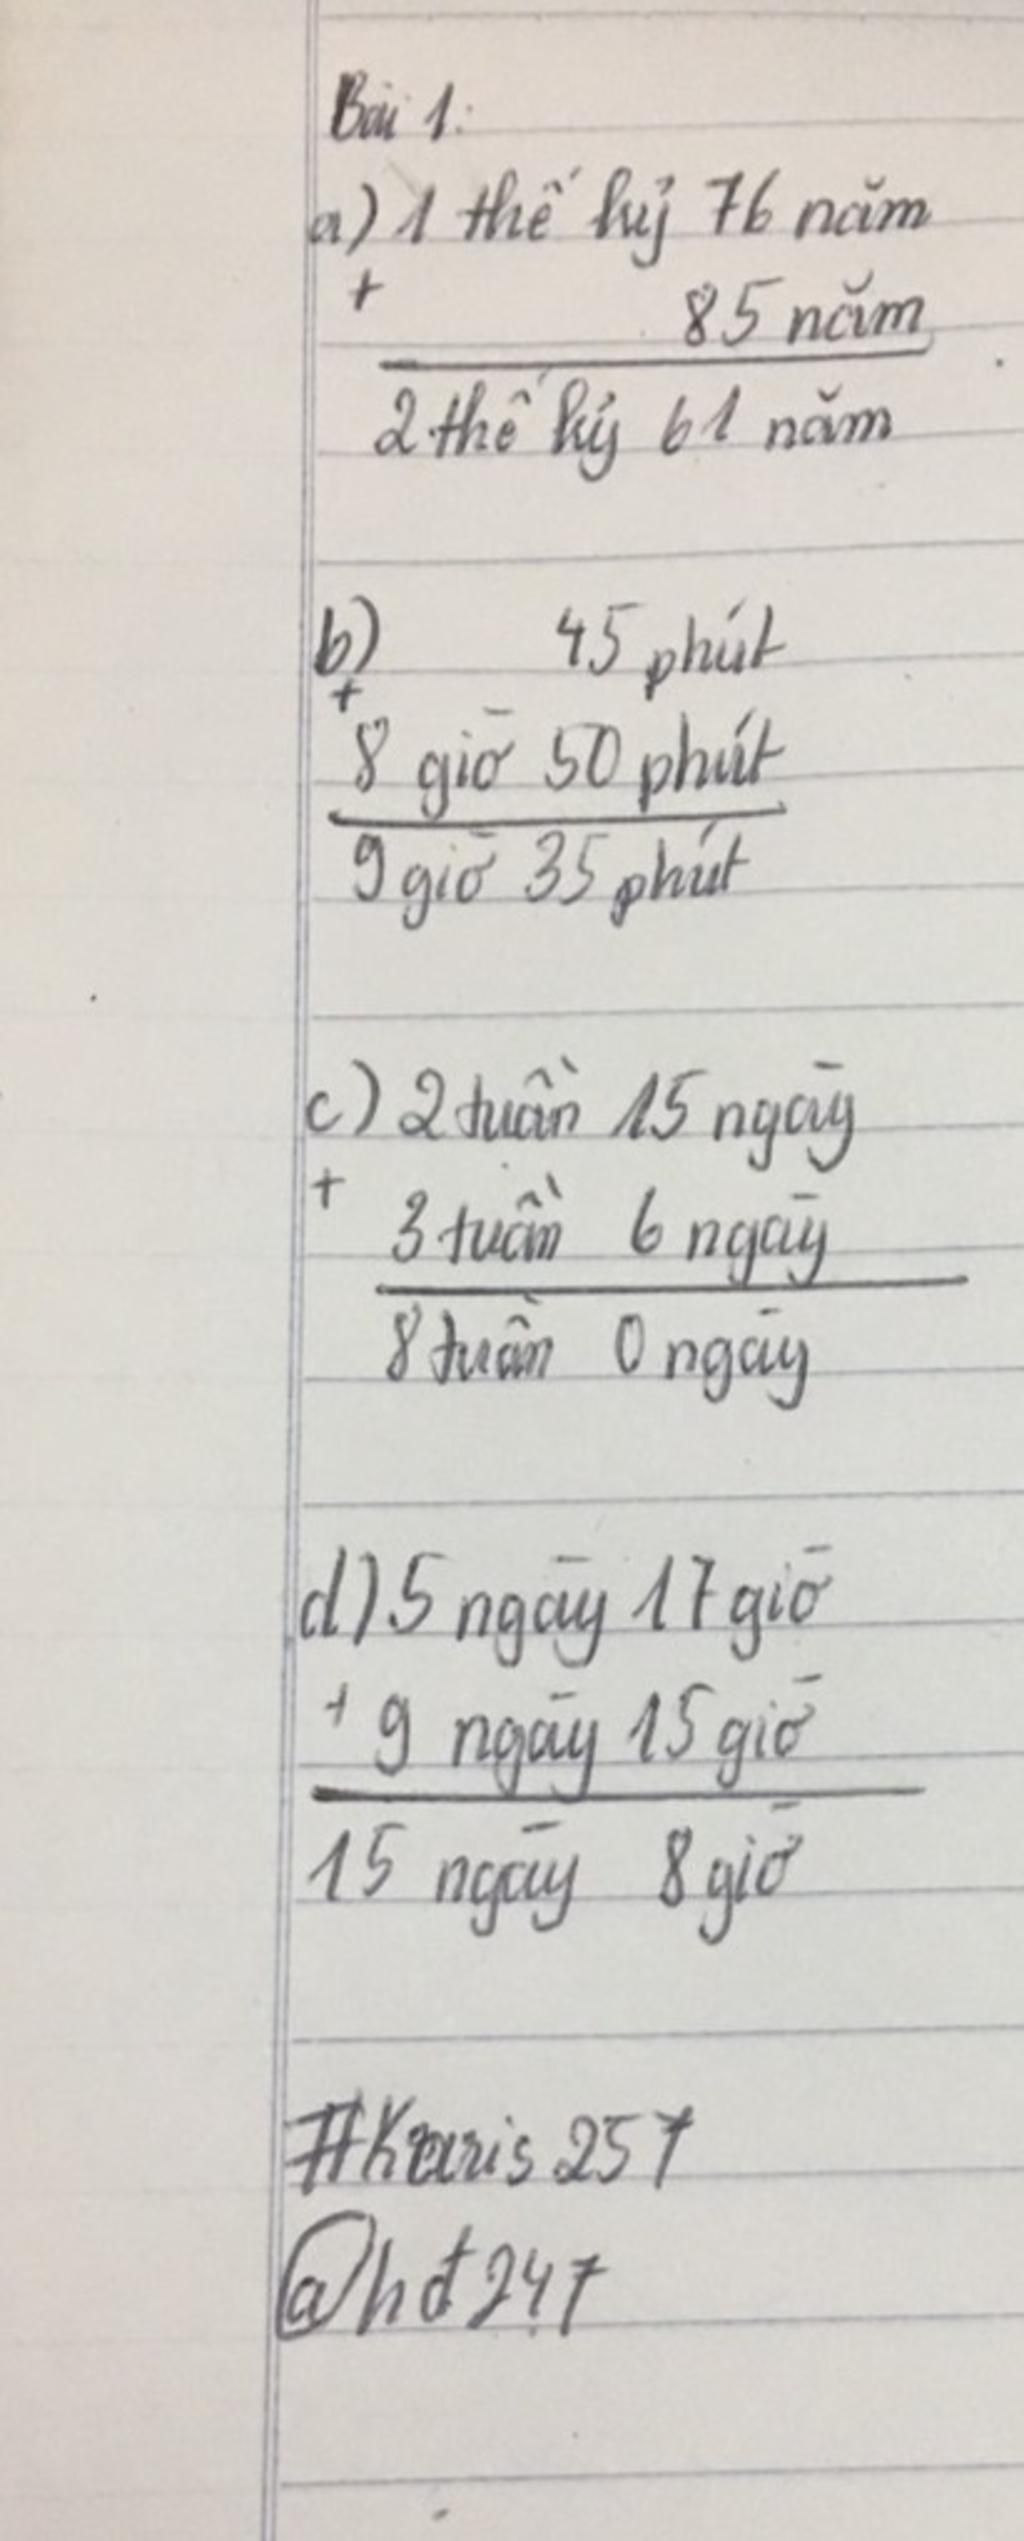 Bài 1:
a) 1 thế kỷ 76 năm
+
85 năm
2 thế kỷ 61 năm
b) 45 phút
+
8 giờ 50 phút
9 giờ 35 phút
c) 2 tuần 15 ngày
+
3 tuần 6 ngày
8 tuần 0 ngày
d) 5 ngày 17 giờ
+ 9 ngày 15 giờ
15 ngày 8 giờ
#Karis 257
@hđ247